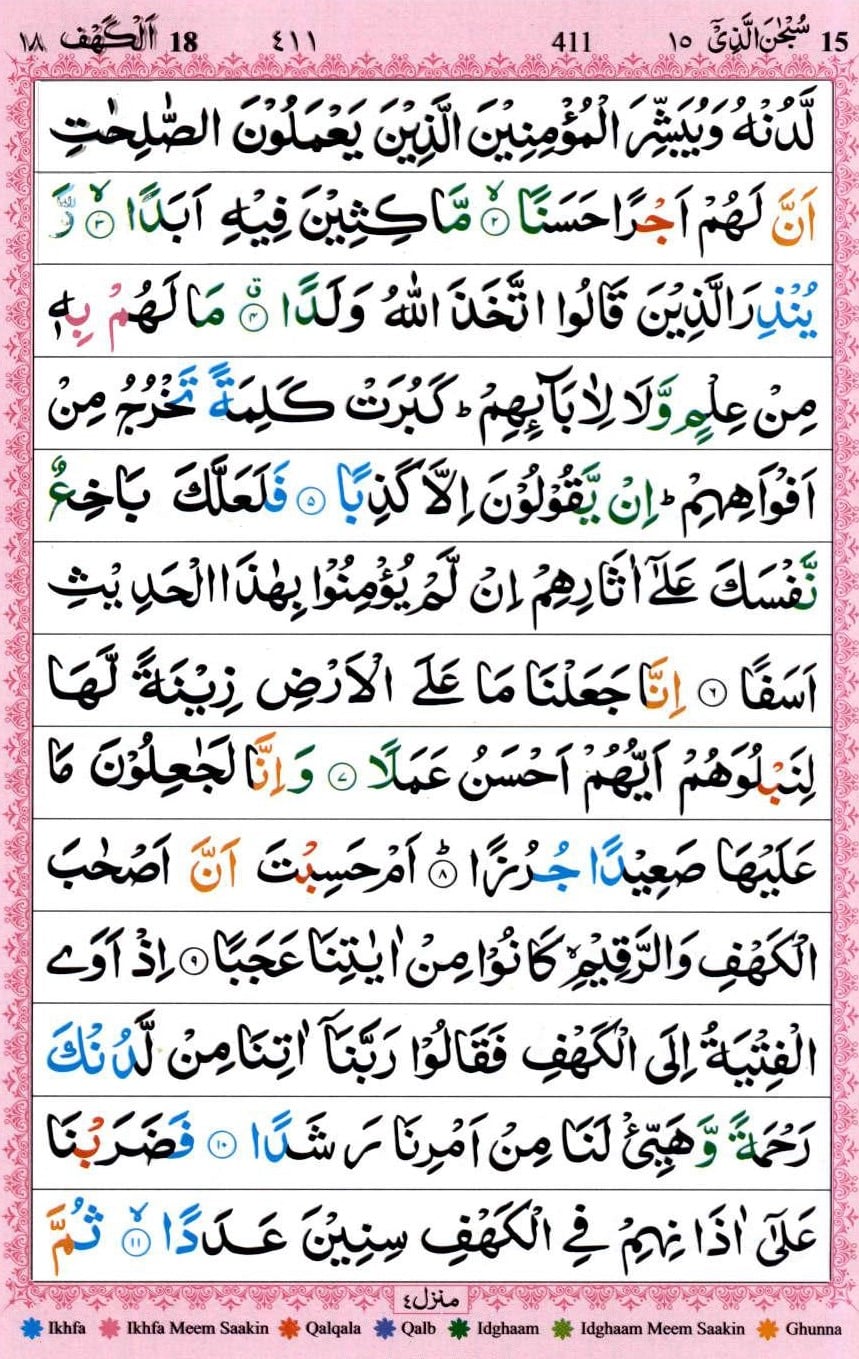 15 سُبْحٰنَ الَّذِیْۤ ١٥ 411 ٤١١ 18 اَلْكَهْف ١٨
لَّدُنْهُ وَیُبَشِّرَ الْمُؤْمِنِیْنَ الَّذِیْنَ یَعْمَلُوْنَ الصّٰلِحٰتِ
اَنَّ لَهُمْ اَجْرًا حَسَنًاۙ ۝٢ مَّاكِثِیْنَ فِیْهِ اَبَدًاۙ ۝٣ وَّ
یُنْذِرَ الَّذِیْنَ قَالُوا اتَّخَذَ اللّٰهُ وَلَدًاۗ ۝٤ مَا لَهُمْ بِهٖ
مِنْ عِلْمٍ وَّلَا لِاٰبَآىِٕهِمْؕ كَبُرَتْ كَلِمَةً تَخْرُجُ مِنْ
اَفْوَاهِهِمْؕ اِنْ یَّقُوْلُوْنَ اِلَّا كَذِبًا ۝٥ فَلَعَلَّكَ بَاخِعٌ
نَّفْسَكَ عَلٰۤی اٰثَارِهِمْ اِنْ لَّمْ یُؤْمِنُوْا بِهٰذَا الْحَدِیْثِ
اَسَفًا ۝٦ اِنَّا جَعَلْنَا مَا عَلَی الْاَرْضِ زِیْنَةً لَّهَا
لِنَبْلُوَهُمْ اَیُّهُمْ اَحْسَنُ عَمَلًا ۝٧ وَاِنَّا لَجٰعِلُوْنَ مَا
عَلَیْهَا صَعِیْدًا جُرُزًاؕ ۝٨ اَمْ حَسِبْتَ اَنَّ اَصْحٰبَ
الْكَهْفِ وَالرَّقِیْمِۙ كَانُوْا مِنْ اٰیٰتِنَا عَجَبًا ۝٩ اِذْ اَوَی
الْفِتْیَةُ اِلَی الْكَهْفِ فَقَالُوْا رَبَّنَاۤ اٰتِنَا مِنْ لَّدُنْكَ
رَحْمَةً وَّهَیِّئْ لَنَا مِنْ اَمْرِنَا رَشَدًا ۝١٠ فَضَرَبْنَا
عَلٰۤی اٰذَانِهِمْ فِی الْكَهْفِ سِنِیْنَ عَدَدًاۙ ۝١١ ثُمَّ
منزل ٤
Ikhfa Ikhfa Meem Saakin Qalqala Qalb Idghaam Idghaam Meem Saakin Ghunna